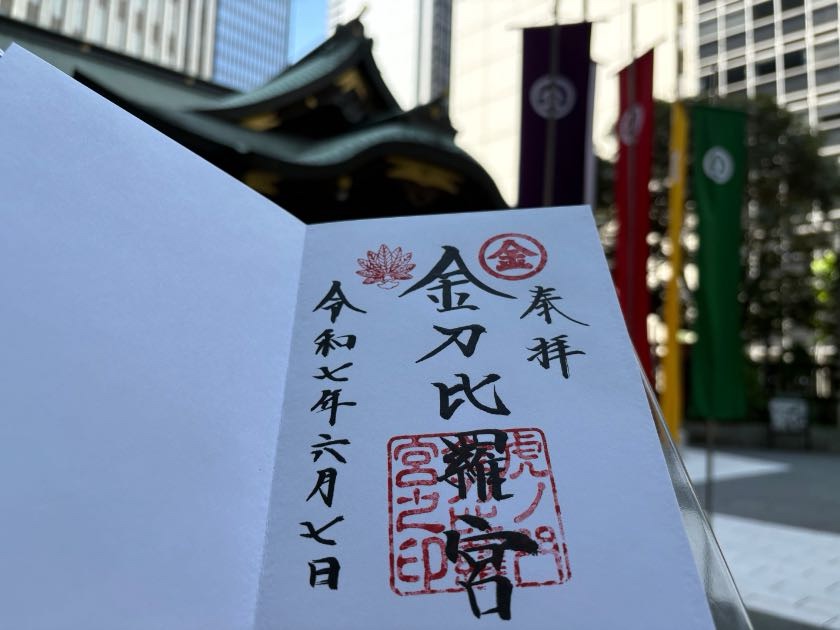 奉拝
金
金刀比羅宮
虎ノ門
宮之印
令和七年六月七日